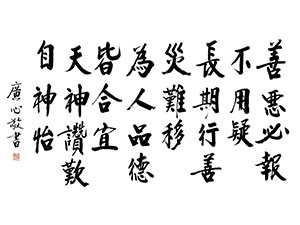 善惡必報
不用疑
長期行善
災難移
為人品德
皆合宜
天神讚歎
自神怡
廣心敬書